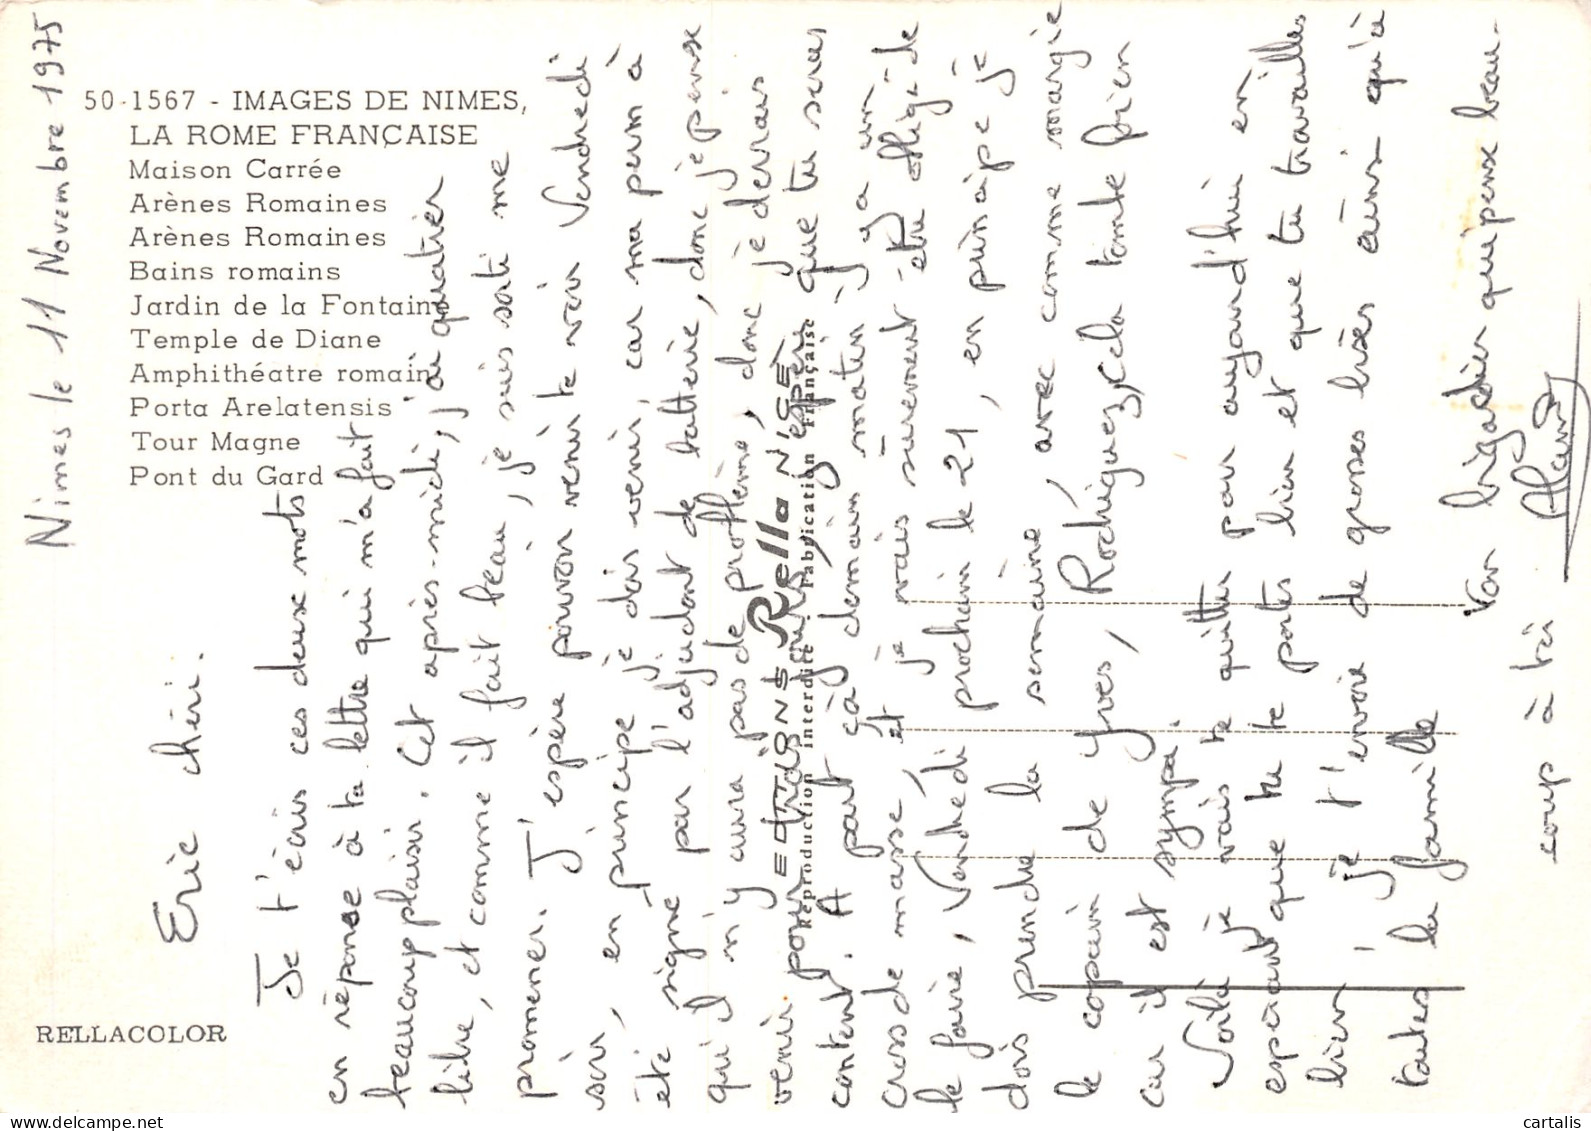 50-1567 - IMAGES DE NIMES,
LA ROME FRANÇAISE
Maison Carrée
Arènes Romaines
Arènes Romaines
Bains romains
Jardin de la Fontaine
Temple de Diane
Amphithéatre romain
Porta Arelatensis
Tour Magne
Pont du Gard
RELLACOLOR
EDITIONS Rella NICE
Reproduction interdite - Fabrication Française
Nimes le 11 Novembre 1975
Eric chéri.
Je t'écris ces deux mots
en réponse à ta lettre qui m'a fait
beaucoup plaisir. Cet après-midi, j'ai quartier
libre, et comme il fait beau, je suis sorti me
promener. J'espère pouvoir venir te voir Vendredi
soir, en principe je dois venir, car ma perm à
été signé par l'adjudant de batterie, donc je pense
qu'il n'y aura pas de problème, donc je devrais
venir pour trois jours, j'espère que tu seras
content. A part ça demain matin j'y a un
cross de masse, et je vais surement être obligé de
le faire, Vendredi prochain le 21, en principe je
dois prendre la semaine, avec comme margie
le copain de Yves, Rodriguez, cela tombe bien
car il est sympa.
Voilà je vais te quitter pour aujourd'hui en
espérant que tu te portes bien et que tu travailles
bien, je t'envoie de grosses bises ainsi qu'à
toutes la famille
Ton brigadier qui pense beau-
coup à toi
Alain
cartalis